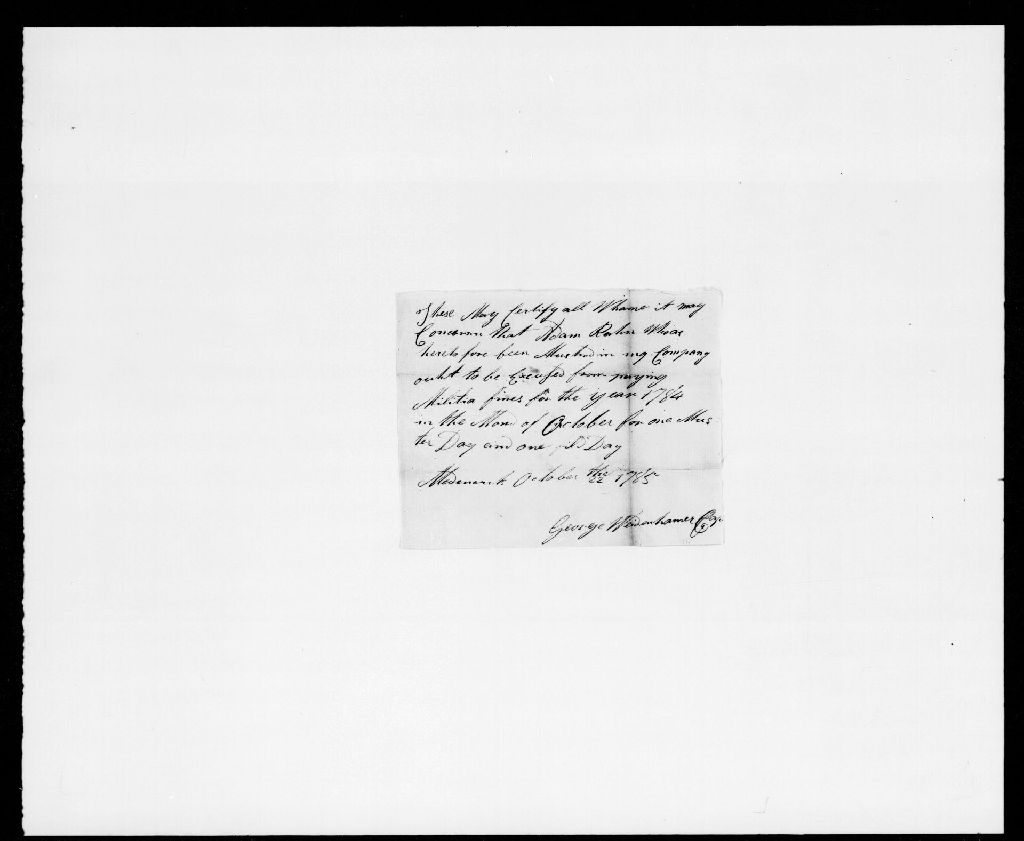 These May Certify all Whame it may
Concern that Adam Rahn Whoas
heretofore been Mustred in my Company
ouht to be Excused from paying
Militia fines for the year 1784
in the Mond of October for one Mus-
ter Day and one Day
October the 22 1785
George Weidenhamer Cap